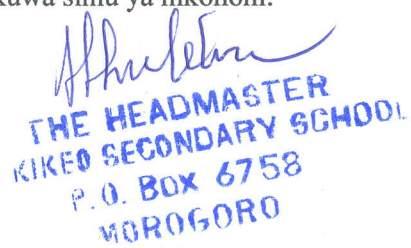 simu ya mkononi.
THE HEADMASTER
KIKEO SECONDARY SCHOOL
P.O. BOX 6758
MOROGORO